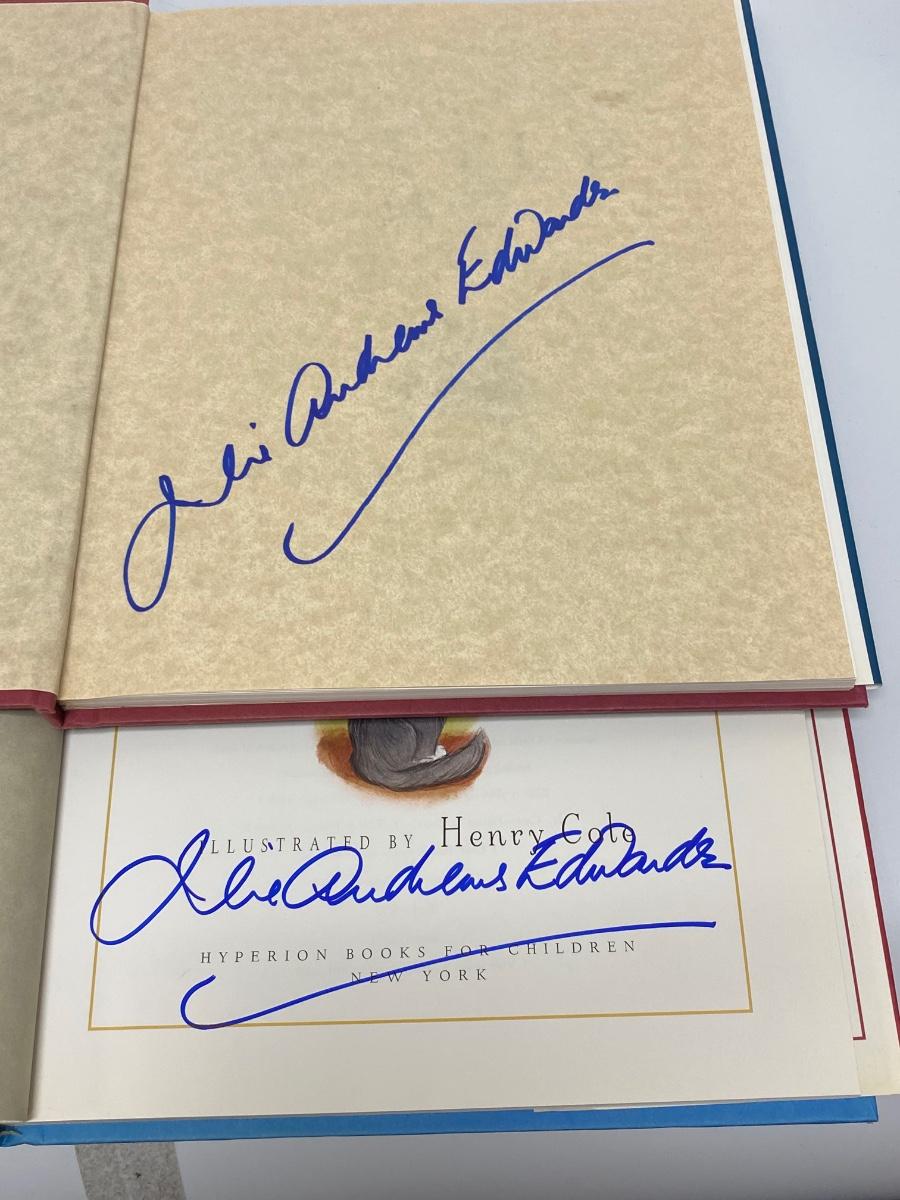 Julie Andrews Edwards
ILLUSTRATED BY Henry Cole
Julie Andrews Edwards
HYPERION BOOKS FOR CHILDREN
NEW YORK